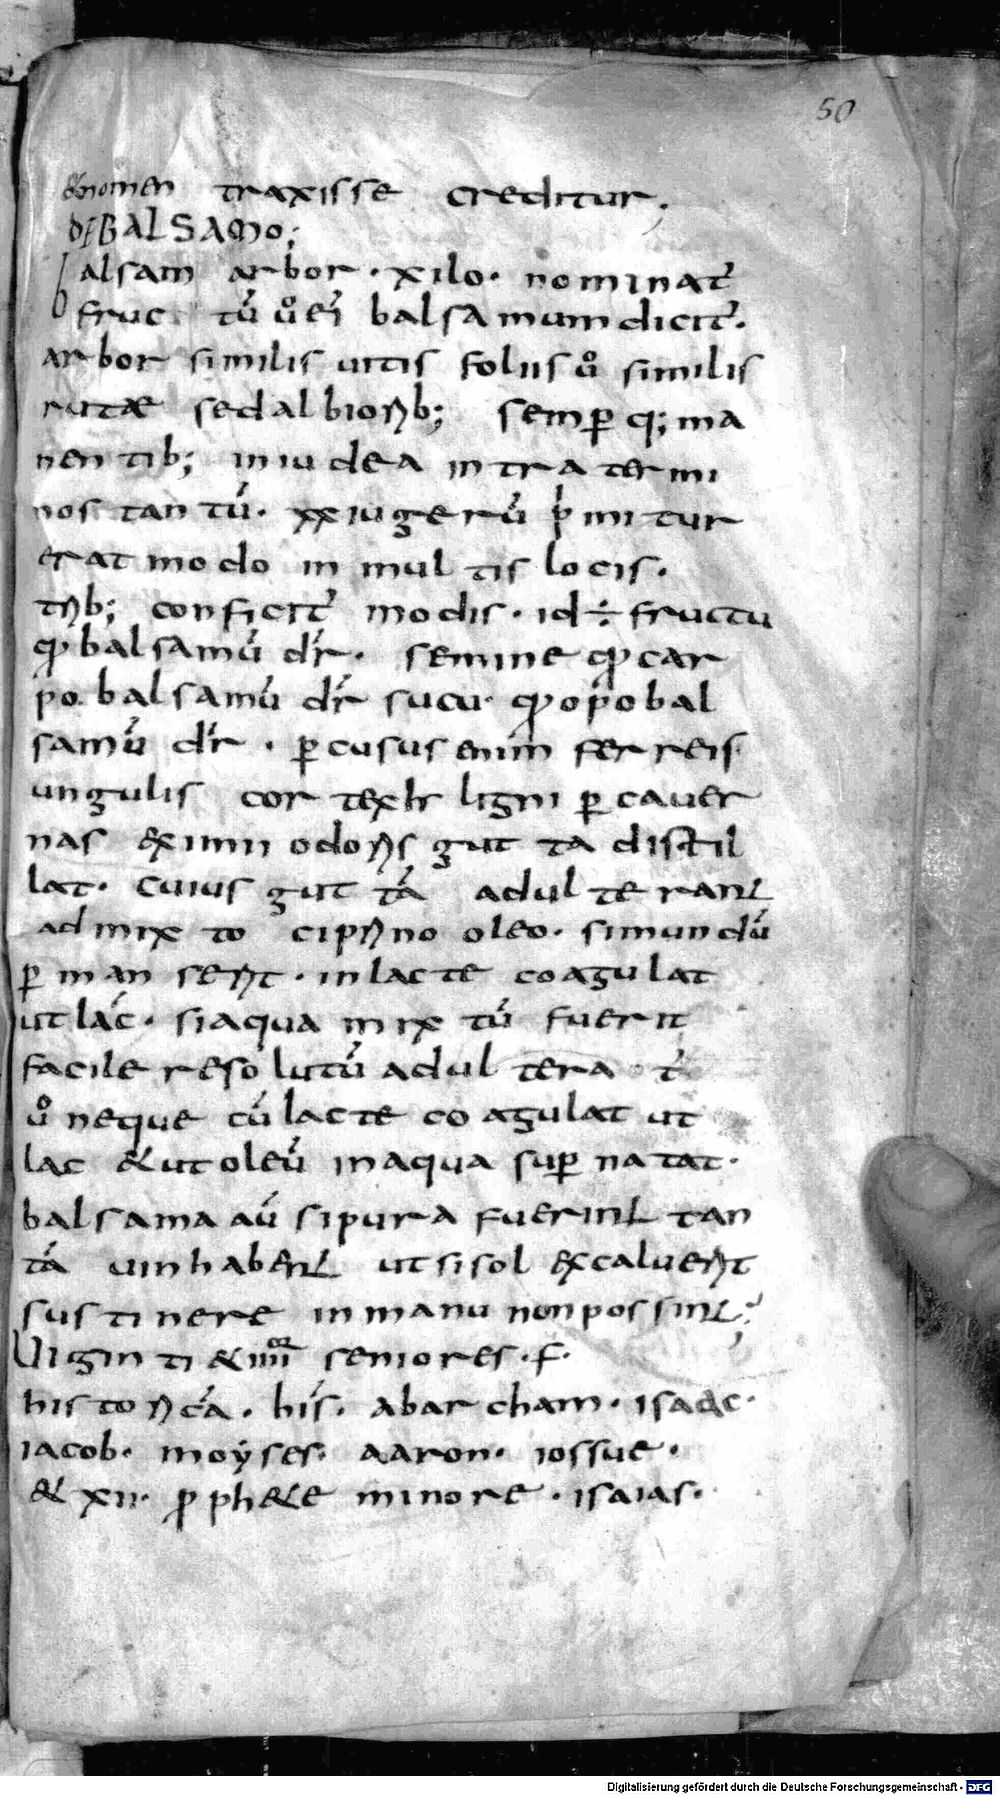 50
& nomen traxisse creditur;
DE BALSAMO;
balsam arbor · xilo · nominat̄
fruc tū ů ei balsamum dicit̄ ·
arbor similis uitis foliis ů similis
rutae sed albiorib; semp̱ q; ma
nentib; in iudea intra termi
nos tantū · xx iugerū p̍mitur
erat modo in multis locis ·
trib; conficit̄ modis · id ÷ fructu
qđ balsamū dr̄ · semine qđ car
po balsamū dr̄ sucu · qđ opobal
samū dr̄ · p̱cusus enim ferreis
ungulis cortex ligni p̱ cauer
nas eximii odoris gutta distil
lat · cuius guttā adulterant
admixto ciprino oleo · si mundū
p̱manserit · in lacte coagulat
ut lac · si aqua mixtū fuerit
facile resolutū adultera t̄
ů neque cū lacte coagulat ut
lac & ut oleū in aqua sup̱natat ·
balsama aū si pura fuerint tan
tā uim habent ut si sol excaluerit
sustinere in manu non possint ·
Uiginti & iiii seniores · f ·
historicā · his · abarcham · isaac ·
iacob · moyses · aaron · iossue ·
& xii · ꝓph&e minore · isaias ·
Digitalisierung gefördert durch die Deutsche Forschungsgemeinschaft - DFG